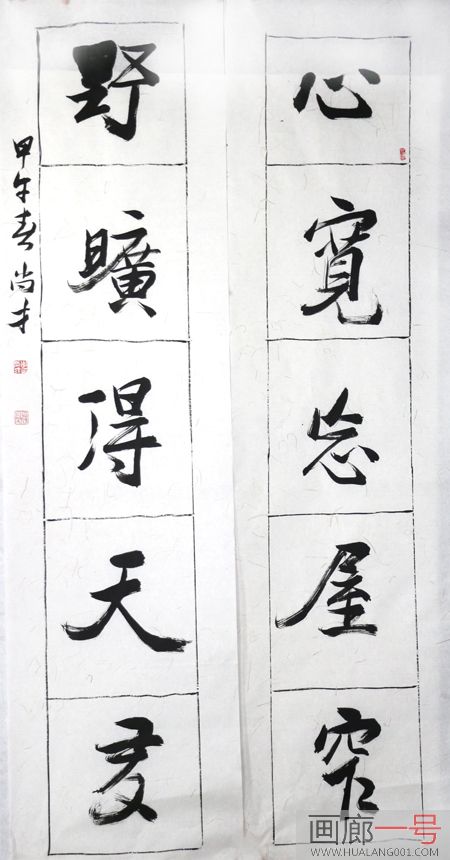 心寬忘屋窄
野曠得天夛
甲午春 尚才
画廊一号
WWW.HUALANG001.COM